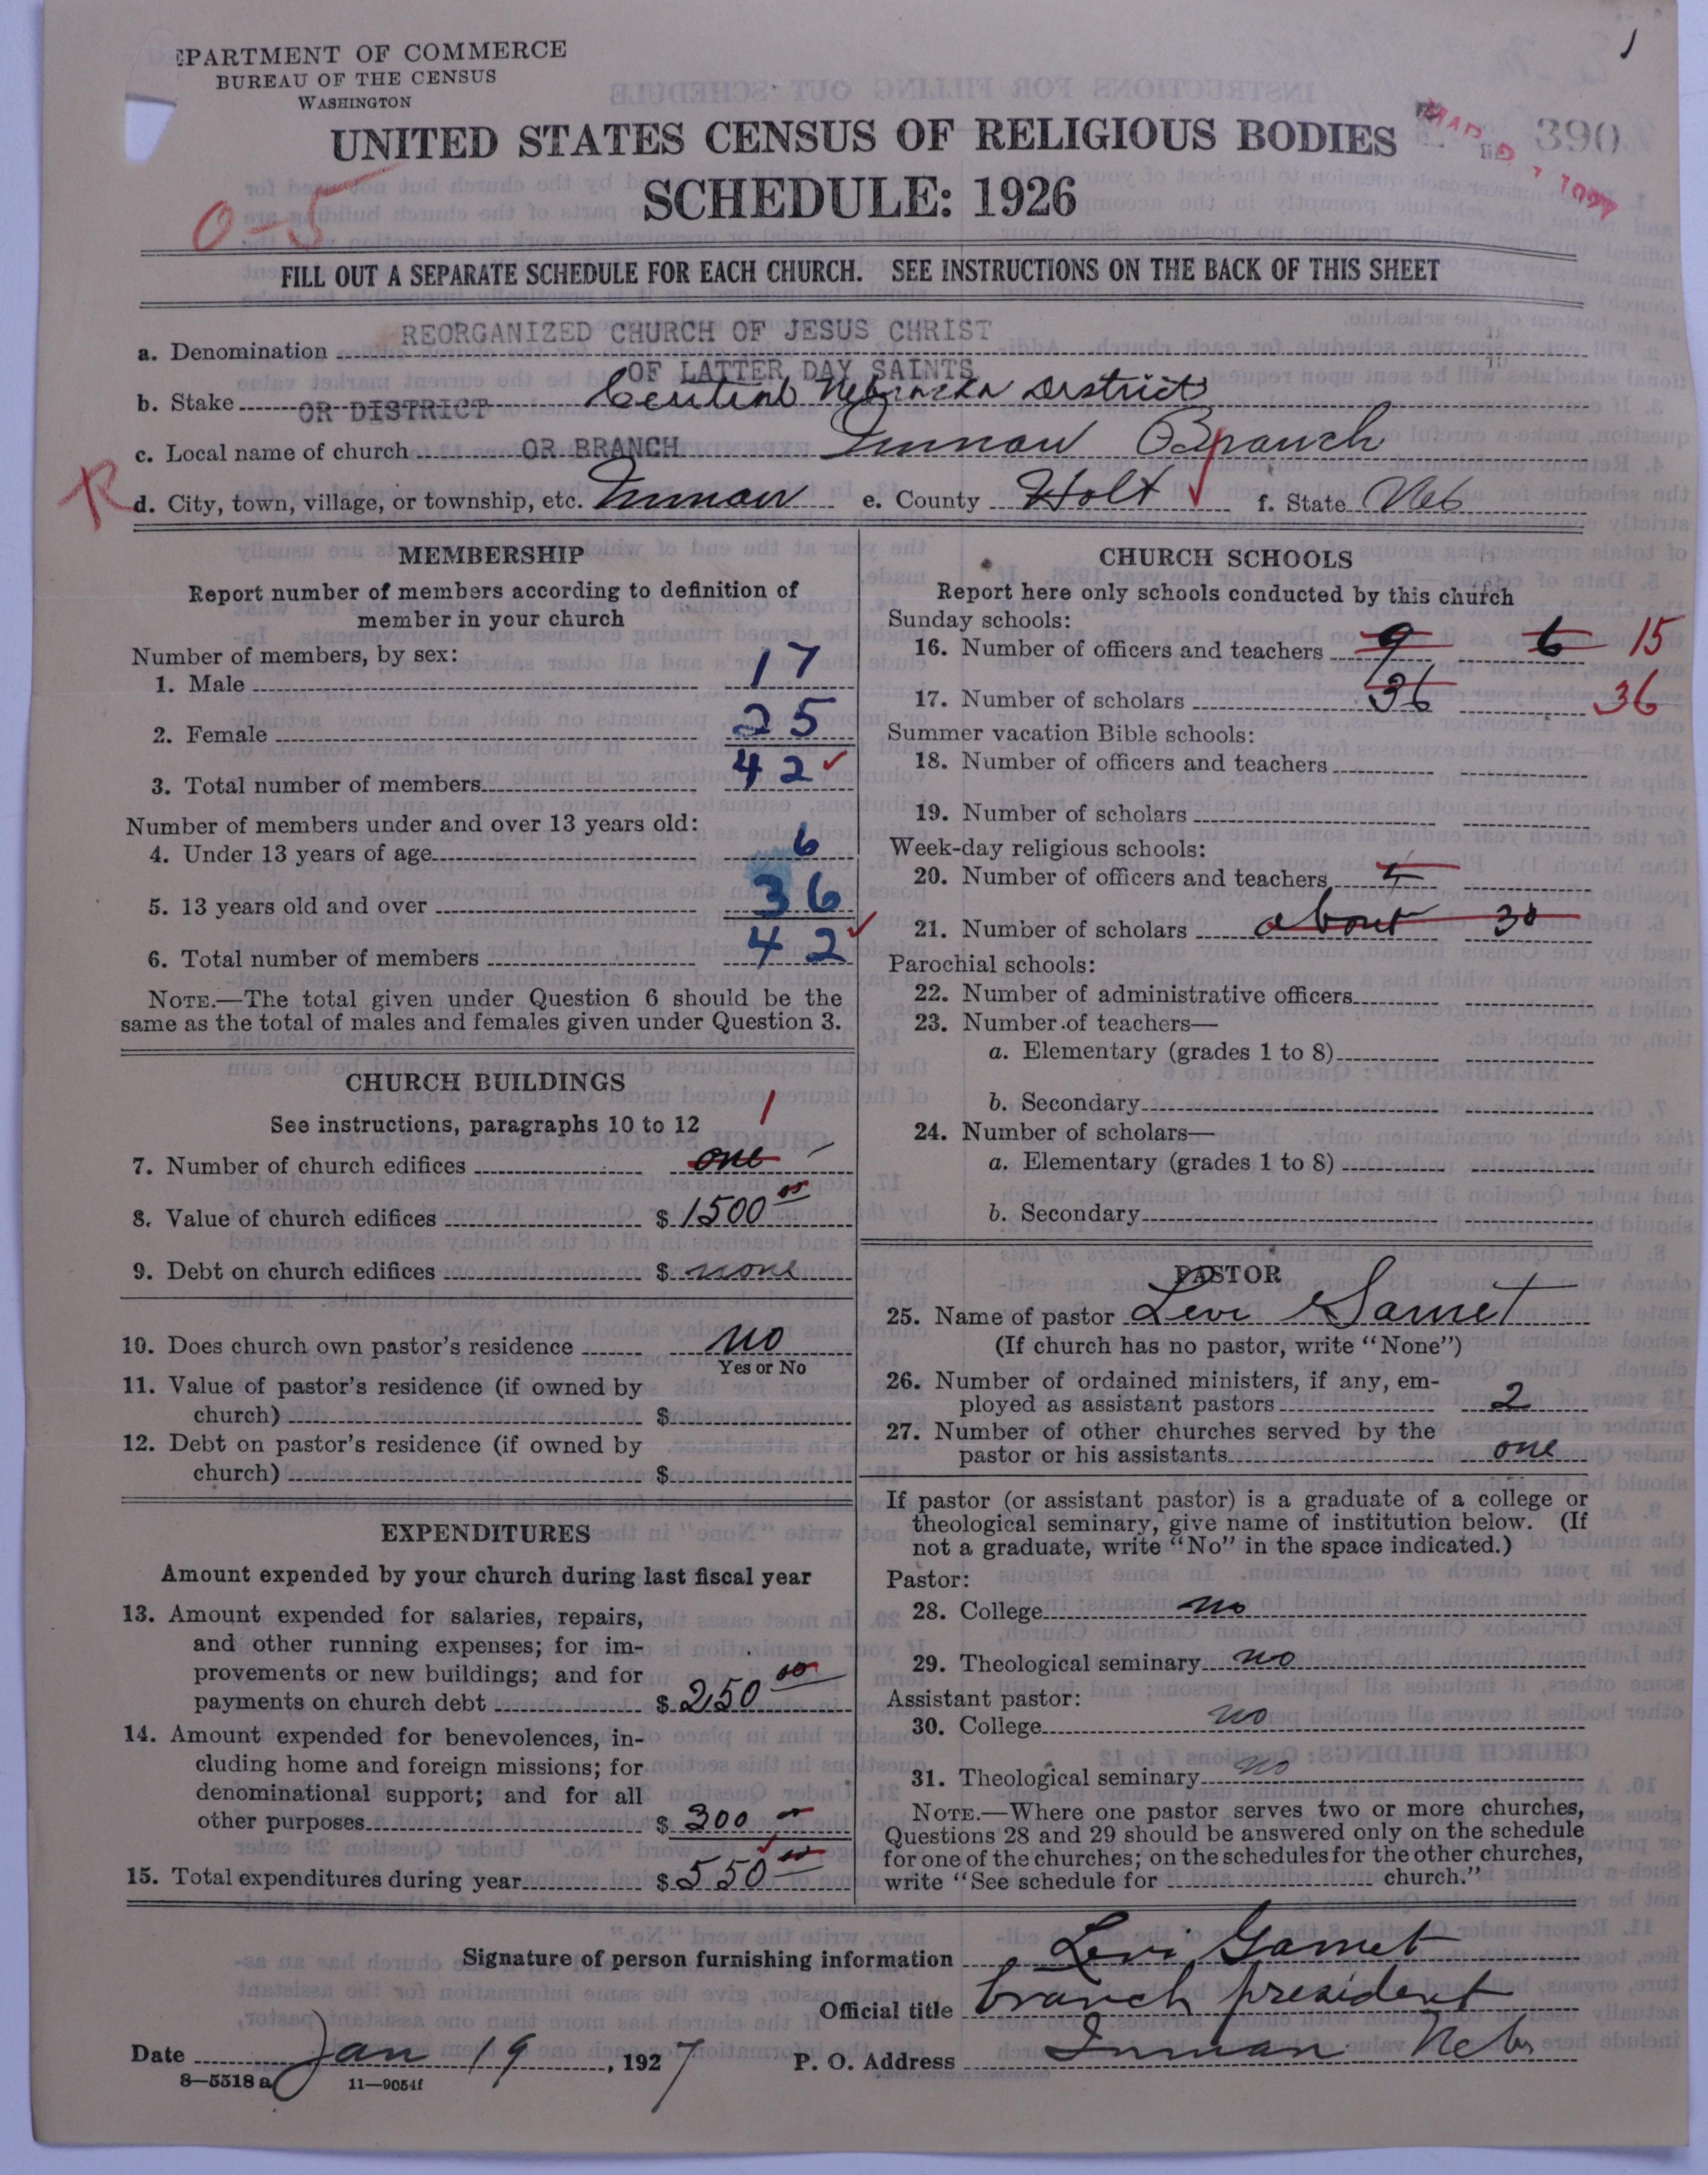 EPARTMENT OF COMMERCE
BUREAU OF THE CENSUS
WASHINGTON
1
UNITED STATES CENSUS OF RELIGIOUS BODIES
390
SCHEDULE: 1926
0-5
FILL OUT A SEPARATE SCHEDULE FOR EACH CHURCH. SEE INSTRUCTIONS ON THE BACK OF THIS SHEET
a. Denomination REORGANIZED CHURCH OF JESUS CHRIST
OF LATTER DAY SAINTS
b. Stake OR DISTRICT Central Nebraska District
c. Local name of church OR BRANCH Inman Branch
R
d. City, town, village, or township, etc. Inman e. County Holt f. State Neb
MEMBERSHIP
Report number of members according to definition of
member in your church
Number of members, by sex:
1. Male 17
2. Female 25
3. Total number of members 42
Number of members under and over 13 years old:
4. Under 13 years of age 6
5. 13 years old and over 36
6. Total number of members 42
NOTE.—The total given under Question 6 should be the
same as the total of males and females given under Question 3.
CHURCH BUILDINGS
See instructions, paragraphs 10 to 12
1
7. Number of church edifices one
8. Value of church edifices $ 1500 00
9. Debt on church edifices $ none
10. Does church own pastor's residence no
Yes or No
11. Value of pastor's residence (if owned by
church) $
12. Debt on pastor's residence (if owned by
church) $
EXPENDITURES
Amount expended by your church during last fiscal year
13. Amount expended for salaries, repairs,
and other running expenses; for im-
provements or new buildings; and for
payments on church debt $ 250 00
14. Amount expended for benevolences, in-
cluding home and foreign missions; for
denominational support; and for all
other purposes $ 300 00
15. Total expenditures during year $ 550 00
CHURCH SCHOOLS
Report here only schools conducted by this church
Sunday schools:
16. Number of officers and teachers 9 6 15
17. Number of scholars 36 36
Summer vacation Bible schools:
18. Number of officers and teachers
19. Number of scholars
Week-day religious schools:
20. Number of officers and teachers
21. Number of scholars about 30
Parochial schools:
22. Number of administrative officers
23. Number of teachers—
a. Elementary (grades 1 to 8)
b. Secondary
24. Number of scholars—
a. Elementary (grades 1 to 8)
b. Secondary
PASTOR
25. Name of pastor Levi Gamet
(If church has no pastor, write "None")
26. Number of ordained ministers, if any, em-
ployed as assistant pastors 2
27. Number of other churches served by the
pastor or his assistants one
If pastor (or assistant pastor) is a graduate of a college or
theological seminary, give name of institution below. (If
not a graduate, write "No" in the space indicated.)
Pastor:
28. College no
29. Theological seminary no
Assistant pastor:
30. College no
31. Theological seminary no
NOTE.—Where one pastor serves two or more churches,
Questions 28 and 29 should be answered only on the schedule
for one of the churches; on the schedules for the other churches,
write "See schedule for church."
Signature of person furnishing information Levi Gamet
Official title branch president
Date Jan 19, 1927 P. O. Address Inman Nebr
8—5518 a 11—9054f